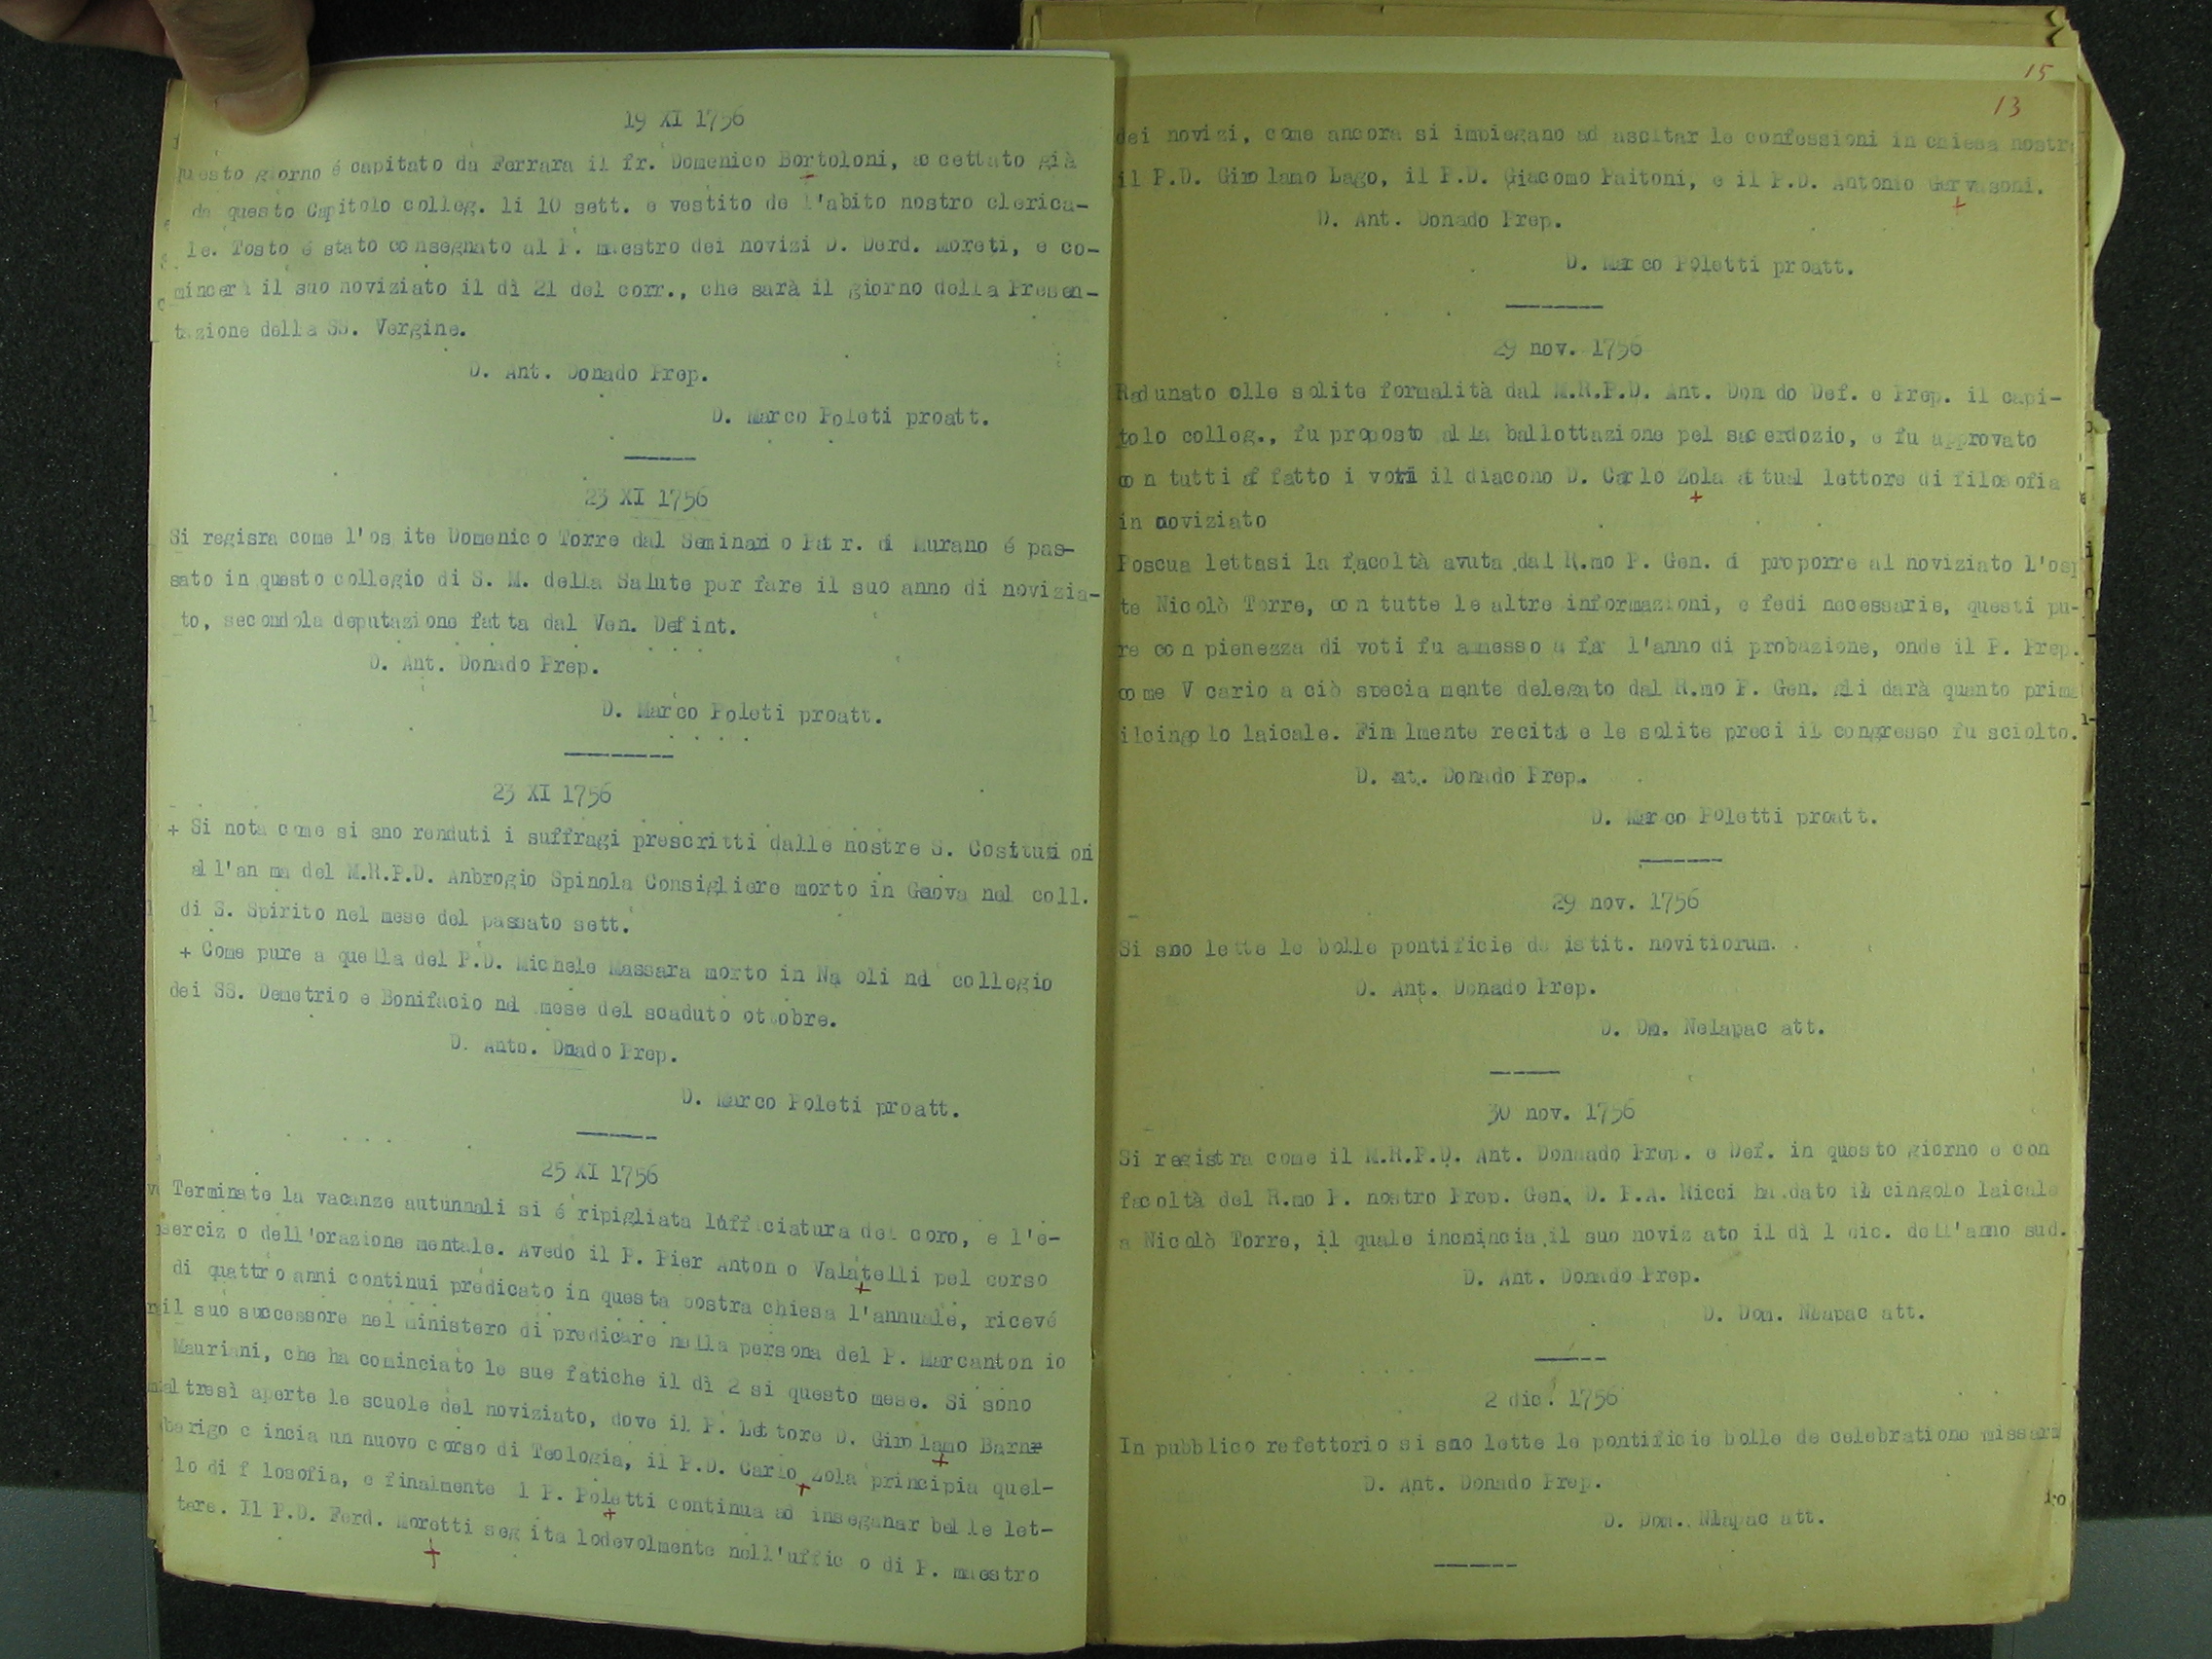 19 XI 1756
questo giorno é capitato da Ferrara il fr. Domenico Bortoloni, accettato già
da questo Capitolo colleg. li 10 sett. e vestito de l'abito nostro clerica-
le. Tosto é stato consegnato al P. maestro dei novizi D. Derd. Moreti, e co-
mincerà il suo noviziato il dì 21 del corr., che sarà il giorno della Presen-
tazione della SS. Vergine.
D. Ant. Donado Prep.
D. Marco Poleti proatt.
23 XI 1756
Si regisra come l'osite Domenico Torre dal Seminario Patr. di Murano é pas-
sato in questo collegio di S. M. della Salute per fare il suo anno di novizia-
to, secondola deputazione fatta dal Ven. Defint.
D. Ant. Donado Prep.
D. Marco Poleti proatt.
23 XI 1756
+ Si nota come si sno renduti i suffragi prescritti dalle nostre S. Costtuzioni
all'anma del M.R.P.D. Anbrogio Spinola Consigliere morto in Genova nel coll.
di S. Spirito nel mese del passato sett.
+ Come pure a quella del P.D. Michele Massara morto in Napoli nel collegio
dei SS. Demetrio e Bonifacio nel mese del scaduto ottobre.
D. Anto. Dnado Prep.
D. Marco Poleti proatt.
25 XI 1756
Terminate la vacanze autunnali si é ripigliata l'ufficiatura del coro, e l'e-
serciz o dell'orazione mentale. Avedo il P. Pier Anton o Valatelli pel corso
di quattro anni continui predicato in questa nostra chiesa l'annuale, ricevé
il suo successore nel ministero di predicare nella persona del P. Marcantonio
Mauriani, che ha cominciato le sue fatiche il dì 2 si questo mese. Si sono
altresì aperte le scuole del noviziato, dove il P. Lettore D. Girolamo Barn
barigo c incia un nuovo corso di Teologia, il P.D. Carlo Zola principia quel-
lo di f losofia, e finalmente l P. Poletti continua ad inseganar belle let-
tere. Il P.D. Ferd. Moretti seg ita lodevolmente nell'uffic o di P. maestro
15
13
dei novizi, come ancora si impiegano ad ascltar le confessioni in chiesa nostra
il P.D. Girolamo Lago, il P.D. Giacomo Paitoni, e il P.D. Antonio Gervasoni.
D. Ant. Donado Prep.
D. Marco Poletti proatt.
29 nov. 1756
Radunato olle solite formalità dal M.R.P.D. Ant. Donado Def. e Prep. il capi-
tolo colleg., fu proposto alla ballottazione pel sacerdozio, e fu approvato
con tutti affatto i voti il diacono D. Carlo Zola attual lettore di filosofia
in noviziato
Poscua lettasi la facoltà avuta dal R.mo P. Gen. di proporre al noviziato l'osp
te Nicolò Torre, con tutte le altre informazioni, e fedi necessarie, questi pu-
re con pienezza di voti fu ammesso a far l'anno di probazione, onde il P. Prep.
come V cario a ciò specia mente delegato dal R.mo P. Gen. gli darà quanto prima
ilcingolo laicale. Finalmente recitate le solite preci il congresso fu sciolto.
D. Ant. Donado Prep.
D. Marco Poletti proatt.
29 nov. 1756
Si sno lette le bolle pontificie de istit. novitiorum.
D. Ant. Donado Prep.
D. Dm. Nelapac att.
30 nov. 1756
Si registra come il M.R.P.D. Ant. Donado Prep. e Def. in questo giorno e con
facoltà del R.mo P. nostro Prep. Gen. D. P.A. Ricci ha dato il cingolo laicale
a Nicolò Torre, il quale incmincia il suo noviz ato il dì 1 dic. dell'anno sud.
D. Ant. Donado Prep.
D. Dom. Nlapac att.
2 dic. 1756
In pubblico refettorio si sno lette le pontificie bolle de celebratione missarm
D. Ant. Donado Prep.
D. Dom. Nlapac att.